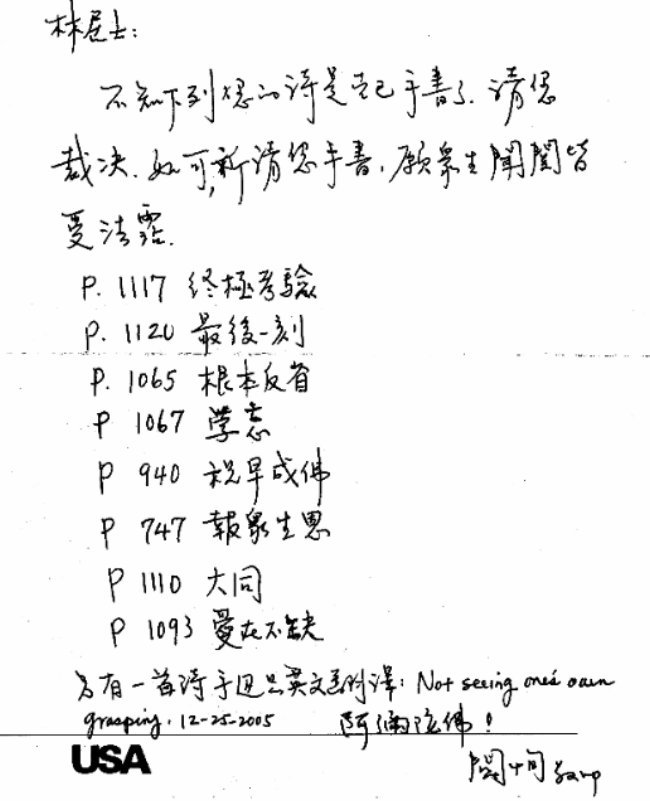 林居士:
不知下列您的诗是否已手書了.請您
裁决.如可,祈請您手書,願衆生聞閱皆
受法露.
P. 1117 终極考驗
P. 1120 最後一刻
P. 1065 根本反省
P 1067 學志
P 940 祝早成佛
P 747 報衆生恩
P 1110 大同
P 1093 愛在不缺
另有一首詩手迴只英文譯: Not seeing one's own
grasping. 12-25-2005 阿彌陀佛!
USA